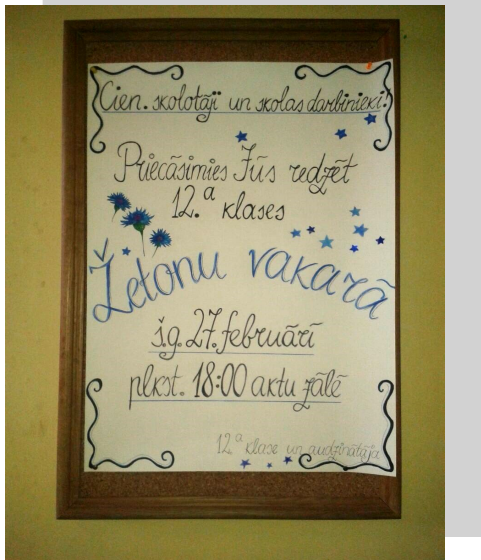 Cien. skolotāji un skolas darbinieki!
Priecāsimies Jūs redzēt
12.a klases
Žetonu vakarā
š.g. 27. februārī
plkst. 18:00 aktu zālē
12.a klase un audzinātāja